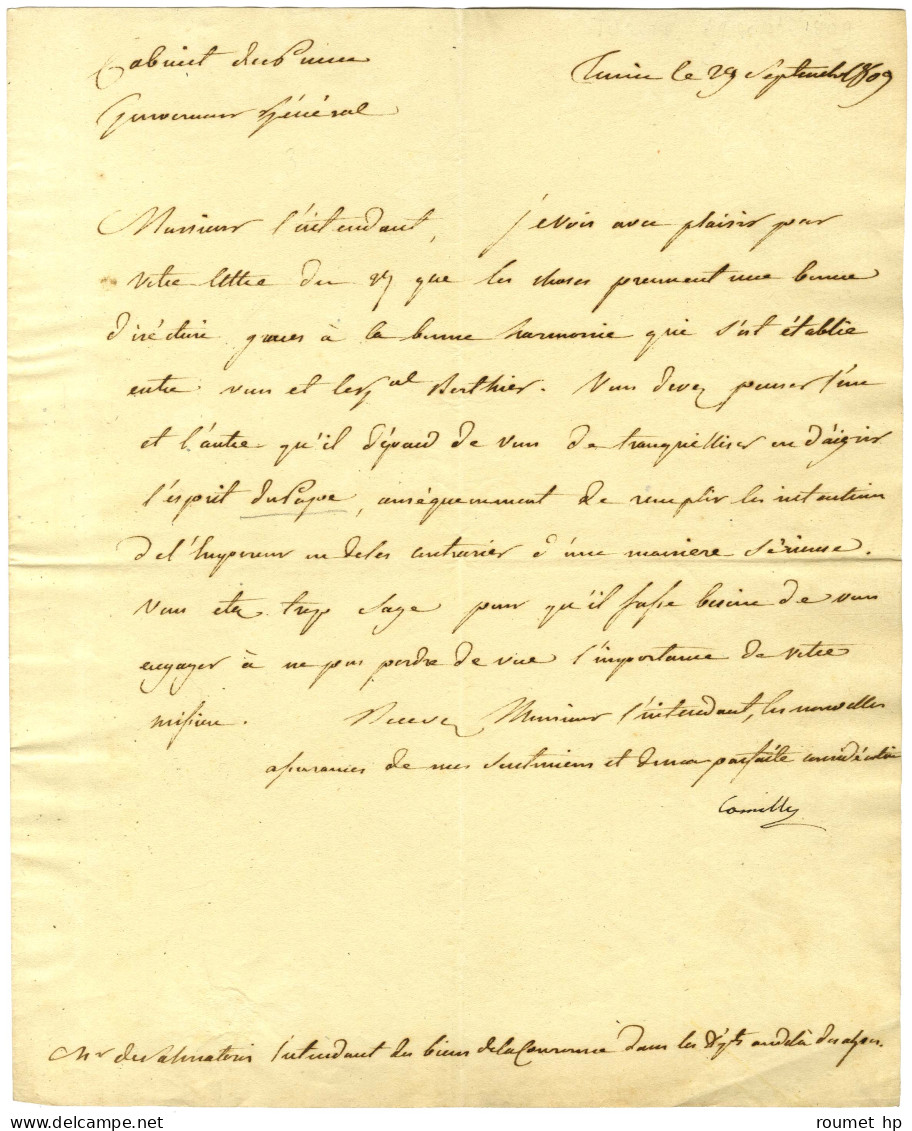 Cabinet du Prince
Turin le 29 Septembre 1809
Gouverneur Général
Monsieur l'intendant, je vois avec plaisir par
votre lettre du 27 que les choses prennent une bonne
diréction graces à la bonne harmonie qui s'est établie
entre vous et le gal Berthier. Vous devez penser l'un
et l'autre qu'il dépend de vous de tranquilliser ou d'aigrir
l'esprit du Pape, conséquemment de remplir les intentions
de l'Empereur ou de les contrarier d'une maniere sérieuse.
Vous etes trop sage pour qu'il fasse besoin de vous
engager à ne pas perdre de vue l'importance de votre
mission. Recevez Monsieur l'intendant, les nouvelles
assurances de mes sentimens et de ma parfaite considération
Camille
Mr de Salmatoris Intendant des biens de la Couronne dans les dépts au delà des alpes.
delcampe.net
roumet hp